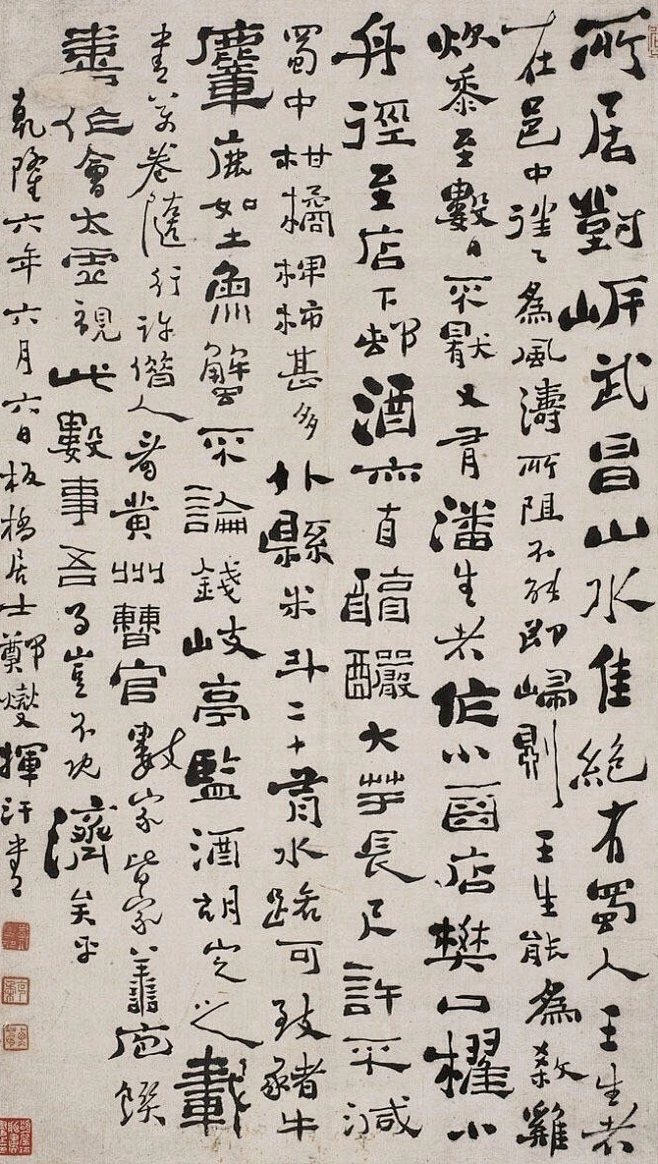 所居對岸武昌山水佳絕有蜀人王生者
在邑中往々為風濤所阻不能即歸則王生能為殺雞
炊黍至數日不厭又有潘生者作小酉店樊口櫂小
舟徑至店下邨酒亦自醇釅大芋長尺許不減
蜀中柑橘椑柿甚多外縣米斗二十有水路可致豬牛
麞鹿如土魚蟹不論錢岐亭監酒胡定之載
書萬卷隨行許借人看黃州曹官數家皆家善庖饌
喜作會太虛視此數事吾事豈不既濟矣乎
乾隆六年六月六日板橋居士鄭燮揮汗書